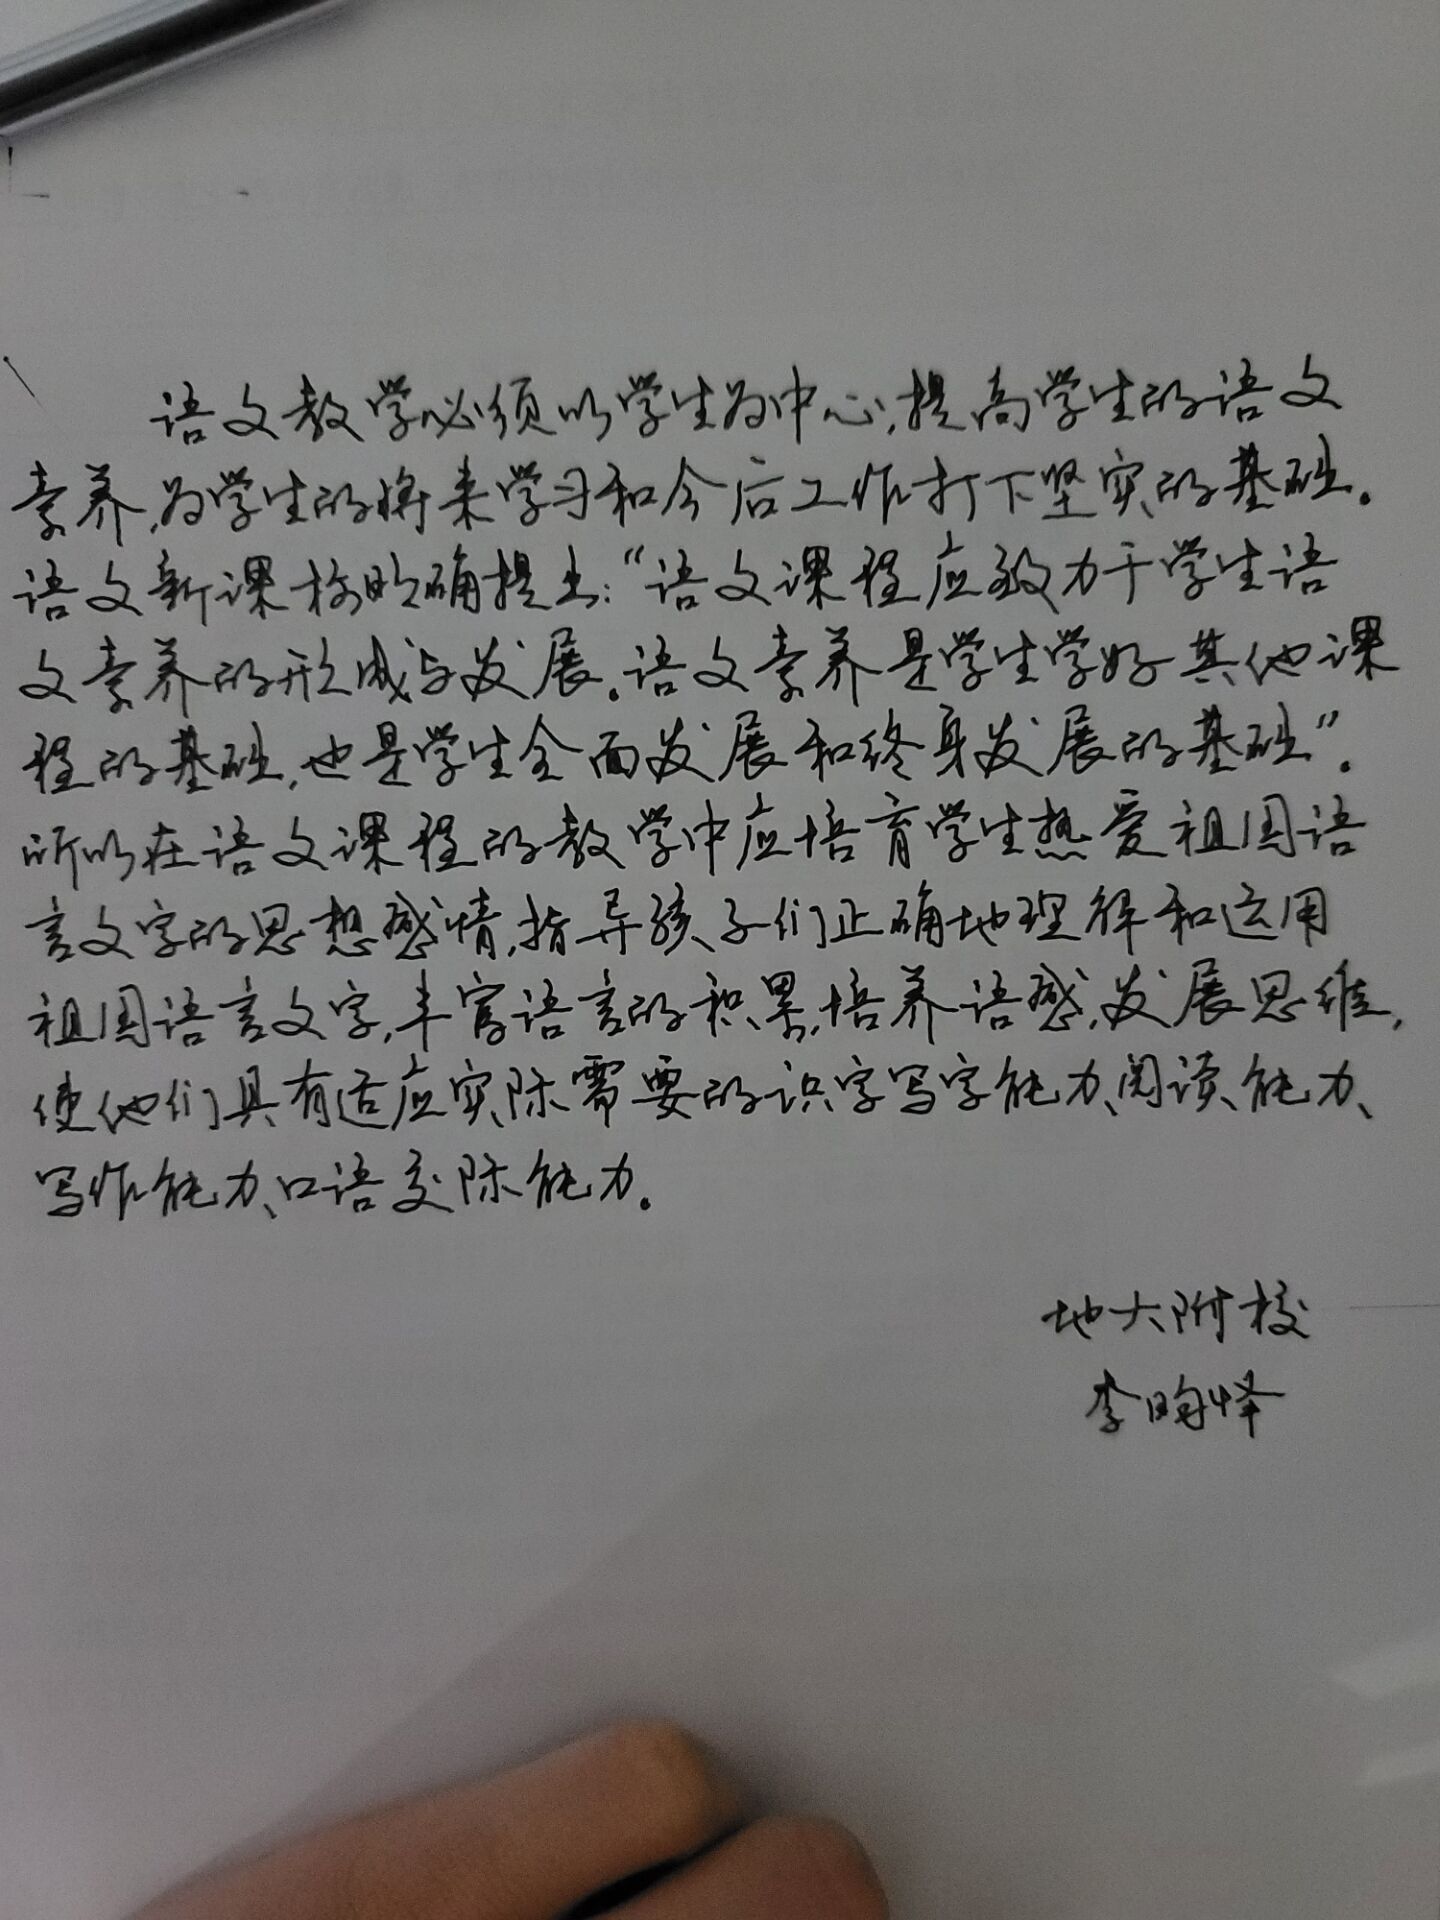 语文教学必须以学生为中心,提高学生的语文
素养,为学生的将来学习和今后工作打下坚实的基础。
语文新课标明确提出:“语文课程应致力于学生语
文素养的形成与发展。语文素养是学生学好其他课
程的基础,也是学生全面发展和终身发展的基础”。
所以在语文课程的教学中应培育学生热爱祖国语
言文字的思想感情,指导孩子们正确地理解和运用
祖国语言文字,丰富语言的积累,培养语感,发展思维,
使他们具有适应实际需要的识字写字能力、阅读能力、
写作能力、口语交际能力。
地大附校
李昀怿